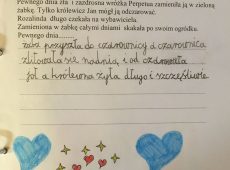 Pewnego dnia zła i zazdrosna wróżka Perpetua zamieniła ją w zieloną
żabkę. Tylko królewicz Jan mógł ją odczarować.
Rozalinda długo czekała na wybawiciela.
Zamieniona w żabkę całymi dniami skakała po swoim ogródku.
Pewnego dnia
żaba przyszła do czarownicy a czarownica
zlitowała się nad nią i od
a królewna żyła długo i szczęśliwie.